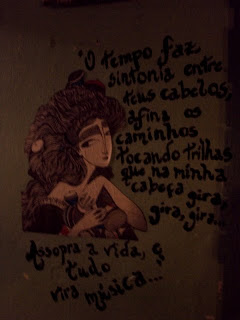 "O tempo faz
sintonia entre
teus cabelos,
afina os
caminhos
tocando trilhas
que na minha
cabeça gira,
gira, gira...
Assopra a vida, ç
tudo
vira música..."